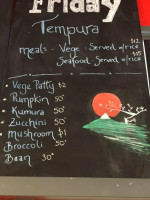 Friday
Tempura
meals - Vege - Served w/rice $12
Seafood - Served w/rice $15
• Vege Patty $2
• Pumpkin 50¢
• Kumura 50¢
• Zucchini 50¢
• mushroom $1
Broccoli 50¢
Bean 30¢